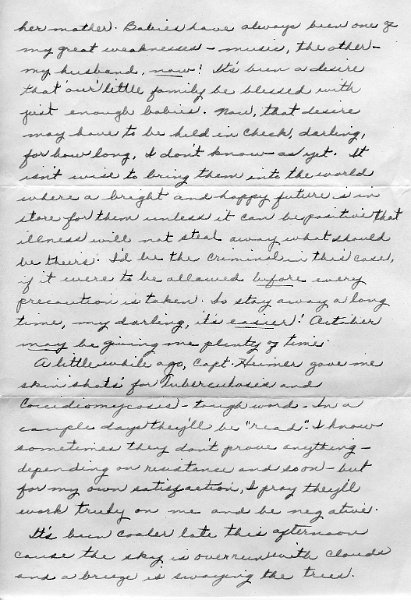 her mother. Babies have always been one of
my great weaknesses - music, the other -
my husband, now! It's been a desire
that our little family be blessed with
just enough babies. Now, that desire
may have to be held in check, darling,
for how long, I don't know - as yet. It
isn't wise to bring them into the world
where a bright and happy future is in
store for them unless it can be positive that
illness will not steal away what should
be theirs. I'd be the criminal in this case,
if it were to be allowed before every
precaution is taken. So stay away a long
time, my darling, it's easier! October
may be giving me plenty of time.
A little while ago, Capt. Heimer gave me
skin shots for Tuberculosis and
Coccidiomycosis - tough word. In a
couple days they'll be "read". I know
sometimes they don't prove anything -
depending on resistance and so on - but
for my own satisfaction, I pray they'll
work truly on me and be negative.
It's been cooler late this afternoon
cause the sky is overrun with clouds
and a breeze is swaying the trees.